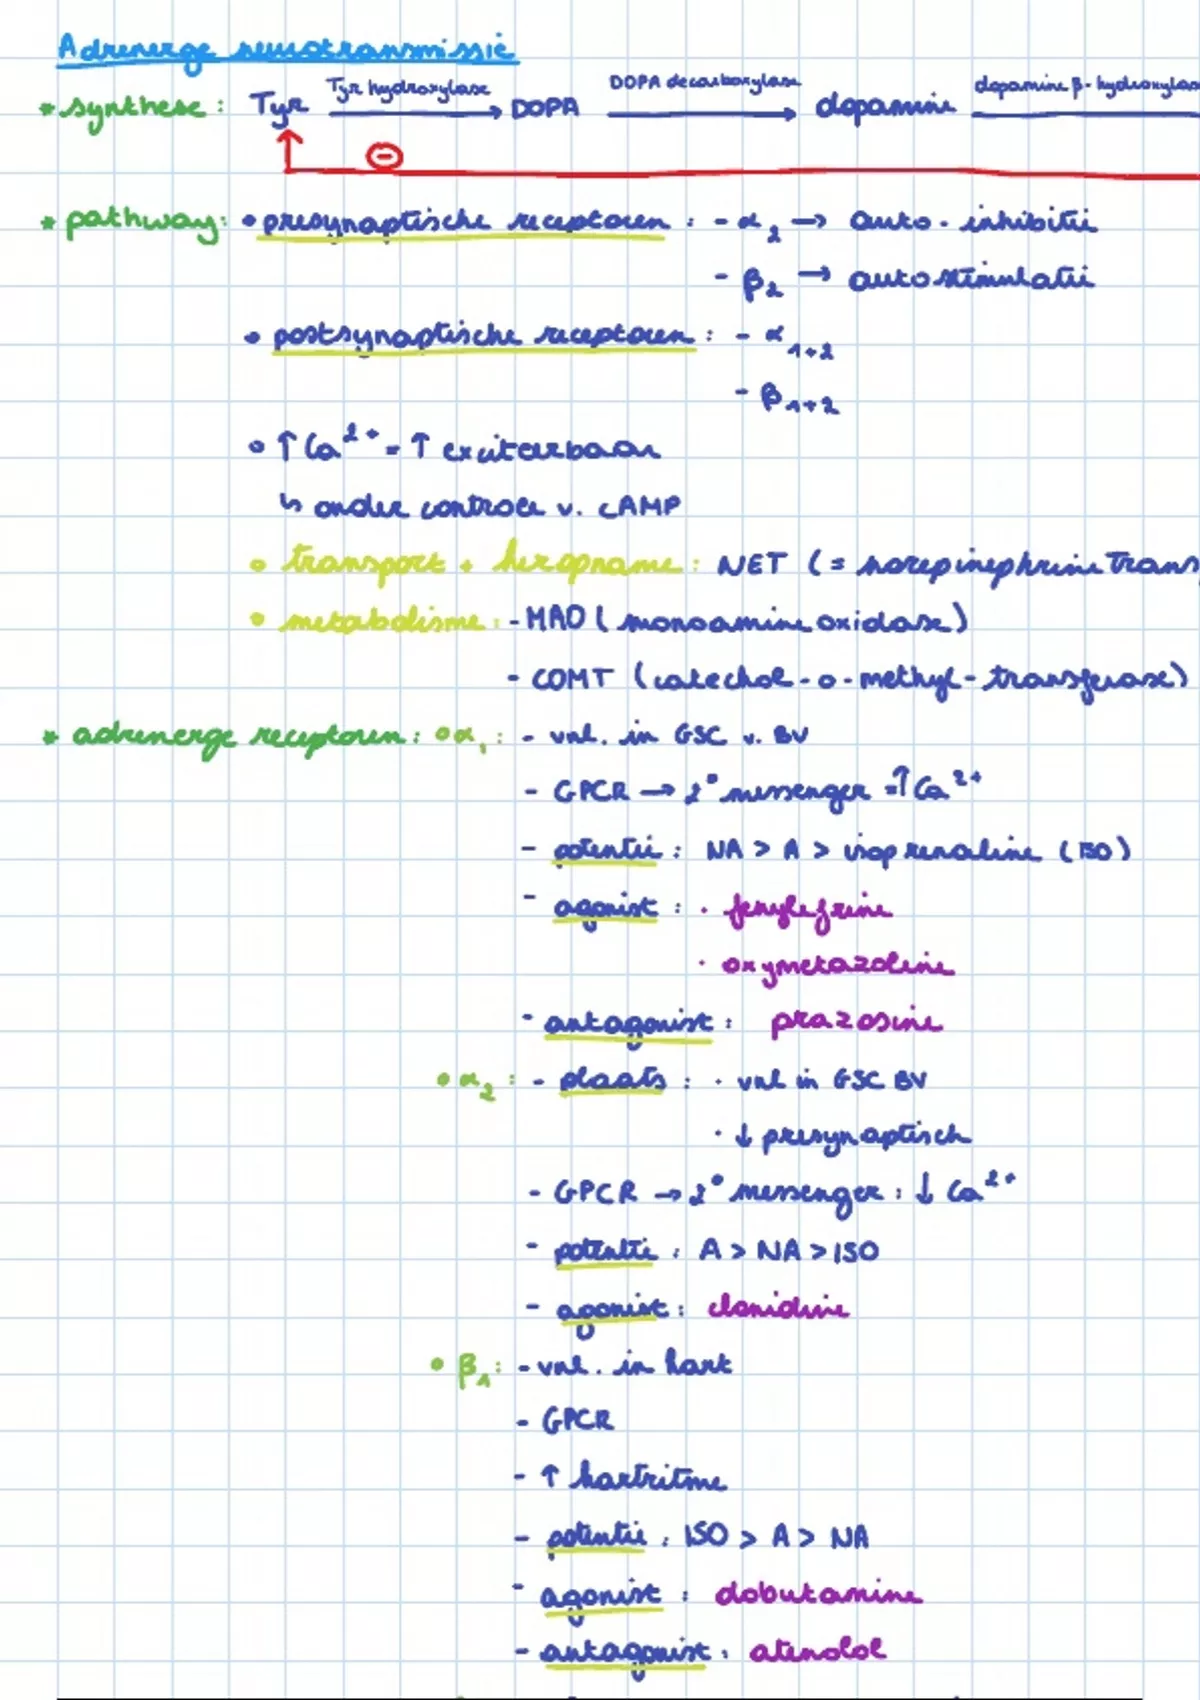 Adrenerge neurotransmissie
Tyr hydroxylase DOPA decarboxylase dopamine β-hydroxylas
* synthese: Tyr → DOPA → dopamine →
⊖
* pathway: • presynaptische receptoren: - α₂ → auto-inhibitie
- β₂ → autostimulatie
• postsynaptische receptoren: - α₁₊₂
- β₁₊₂
• ↑ Ca²⁺ = ↑ exciteerbaar
↳ onder controle v. cAMP
• transport + heropname: NET (= norepinephrine Trans
• metabolisme: - MAO (monoamine oxidase)
- COMT (catechol-o-methyl-transferase)
* adrenerge receptoren: • α₁: - vnl. in GSC v. BV
- GPCR → 2° messenger = ↑ Ca²⁺
- potentie: NA > A > isoprenaline (ISO)
- agonist: · fenylefrine
· oxymetazoline
- antagonist: prazosine
• α₂: - plaats: · vnl in GSC BV
· ↓ presynaptisch
- GPCR → 2° messenger: ↓ Ca²⁺
- potentie: A > NA > ISO
- agonist: clonidine
• β₁: - vnl. in hart
- GPCR
- ↑ hartritme
- potentie: ISO > A > NA
- agonist: dobutamine
- antagonist: atenolol